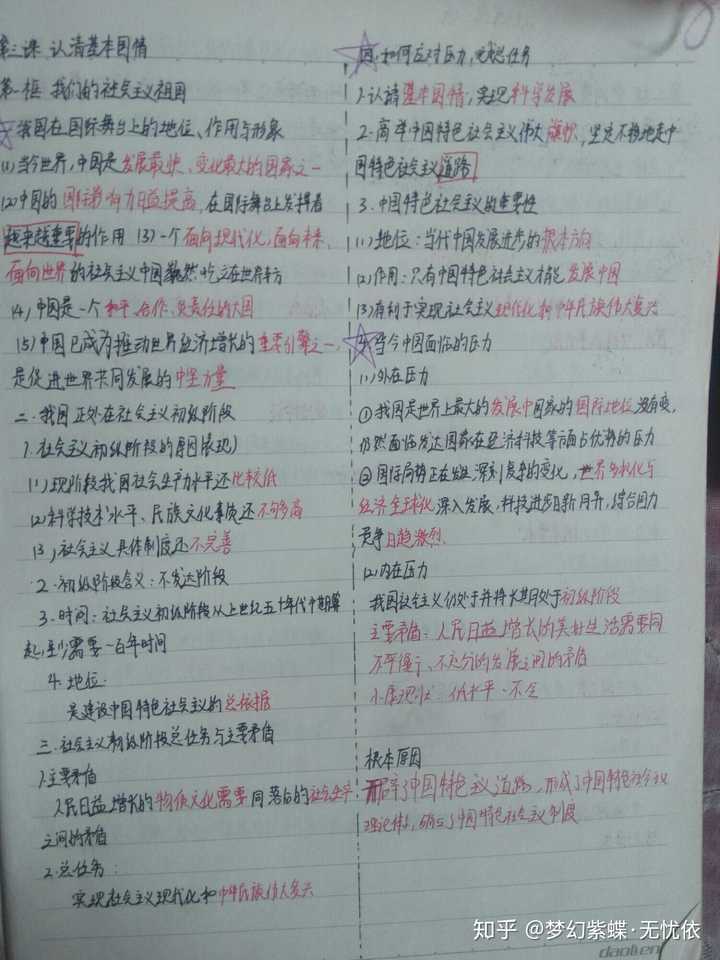 第三课 认清基本国情
第一框 我们的社会主义祖国
一、我国在国际舞台上的地位、作用与形象
(1)当今世界,中国是发展最快、变化最大的国家之一
(2)中国的国际影响力日益提高,在国际舞台上发挥着
越来越重要的作用 (3)一个面向现代化,面向未来,
面向世界的社会主义中国巍然屹立在世界东方
(4)中国是一个和平、合作、负责任的大国
(5)中国已成为推动世界经济增长的重要引擎之一,
是促进世界共同发展的中坚力量
二.我国正处在社会主义初级阶段
1.社会主义初级阶段的原因(表现)
(1)现阶段我国社会生产力水平还比较低
(2)科学技术水平、民族文化素质还不够高
(3)社会主义具体制度还不完善
2.初级阶段含义:不发达阶段
3.时间:社会主义初级阶段从上世纪五十年代中期算
起,至少需要一百年时间
4.地位:
是建设中国特色社会主义的总依据
三.社会主义初级阶段总任务与主要矛盾
1.主要矛盾
人民日益增长的物质文化需要同落后的社会生产
之间的矛盾
2.总任务:
实现社会主义现代化和中华民族伟大复兴
四.如何应对压力,完成总任务
1.认清基本国情,实现科学发展
2.高举中国特色社会主义伟大旗帜,坚定不移地走中
国特色社会主义道路
3.中国特色社会主义的重要性
(1)地位:当代中国发展进步的根本方向
(2)作用:只有中国特色社会主义才能发展中国
(3)有利于实现社会主义现代化和中华民族伟大复兴
当今中国面临的压力
(1)外在压力
①我国是世界上最大的发展中国家的国际地位没有变,
仍然面临发达国家在经济科技等方面占优势的压力
②国际局势正在发生深刻复杂的变化,世界多极化与
经济全球化深入发展,科技进步日新月异,综合国力
竞争日趋激烈.
(2)内在压力
我国社会主义仍处于并将长期处于初级阶段
主要矛盾:人民日益增长的美好生活需要同
不平衡、不充分的发展之间的矛盾
小康现状:低水平、不全
根本原因
开辟了中国特色主义道路,形成了中国特色社会主义
理论体系,确立了中国特色社会主义制度
知乎 @梦幻紫蝶·无忧依